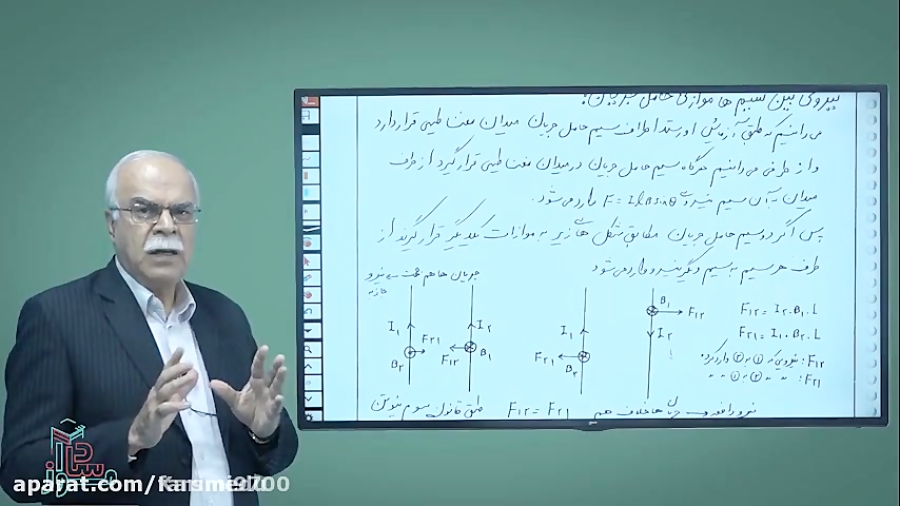 نیروی بین سیم های موازی حامل جریان:
می دانیم که طبق آزمایش اورستد اطراف سیم حامل جریان میدان مغناطیسی قرار دارد
و از طرفی می دانیم هرگاه سیم حامل جریان در میدان مغناطیسی قرار گیرد از طرف
میدان به آن سیم نیروی F = IlB sinθ وارد می شود.
پس اگر دو سیم حامل جریان مطابق شکل های زیر به موازات یکدیگر قرار گیرند از
طرف هر سیم به سیم دیگر نیرو وارد می شود
جریان ها هم جهت نیرو
جاذبه
I₁ F₂₁ B₂
I₂ F₁₂ B₁
I₁ F₂₁ B₂
B₁ F₁₂ I₂
F₁₂ = I₂.B₁.L
F₂₁ = I₁.B₂.L
F₁₂: نیرویی که ① به ② وارد کرد.
F₂₁: " " ② به ① " "
نیرو دافعه جریان ها خلاف هم
F₁₂ = F₂₁ طبق قانون سوم نیوتن
aparat.com/farsmed700